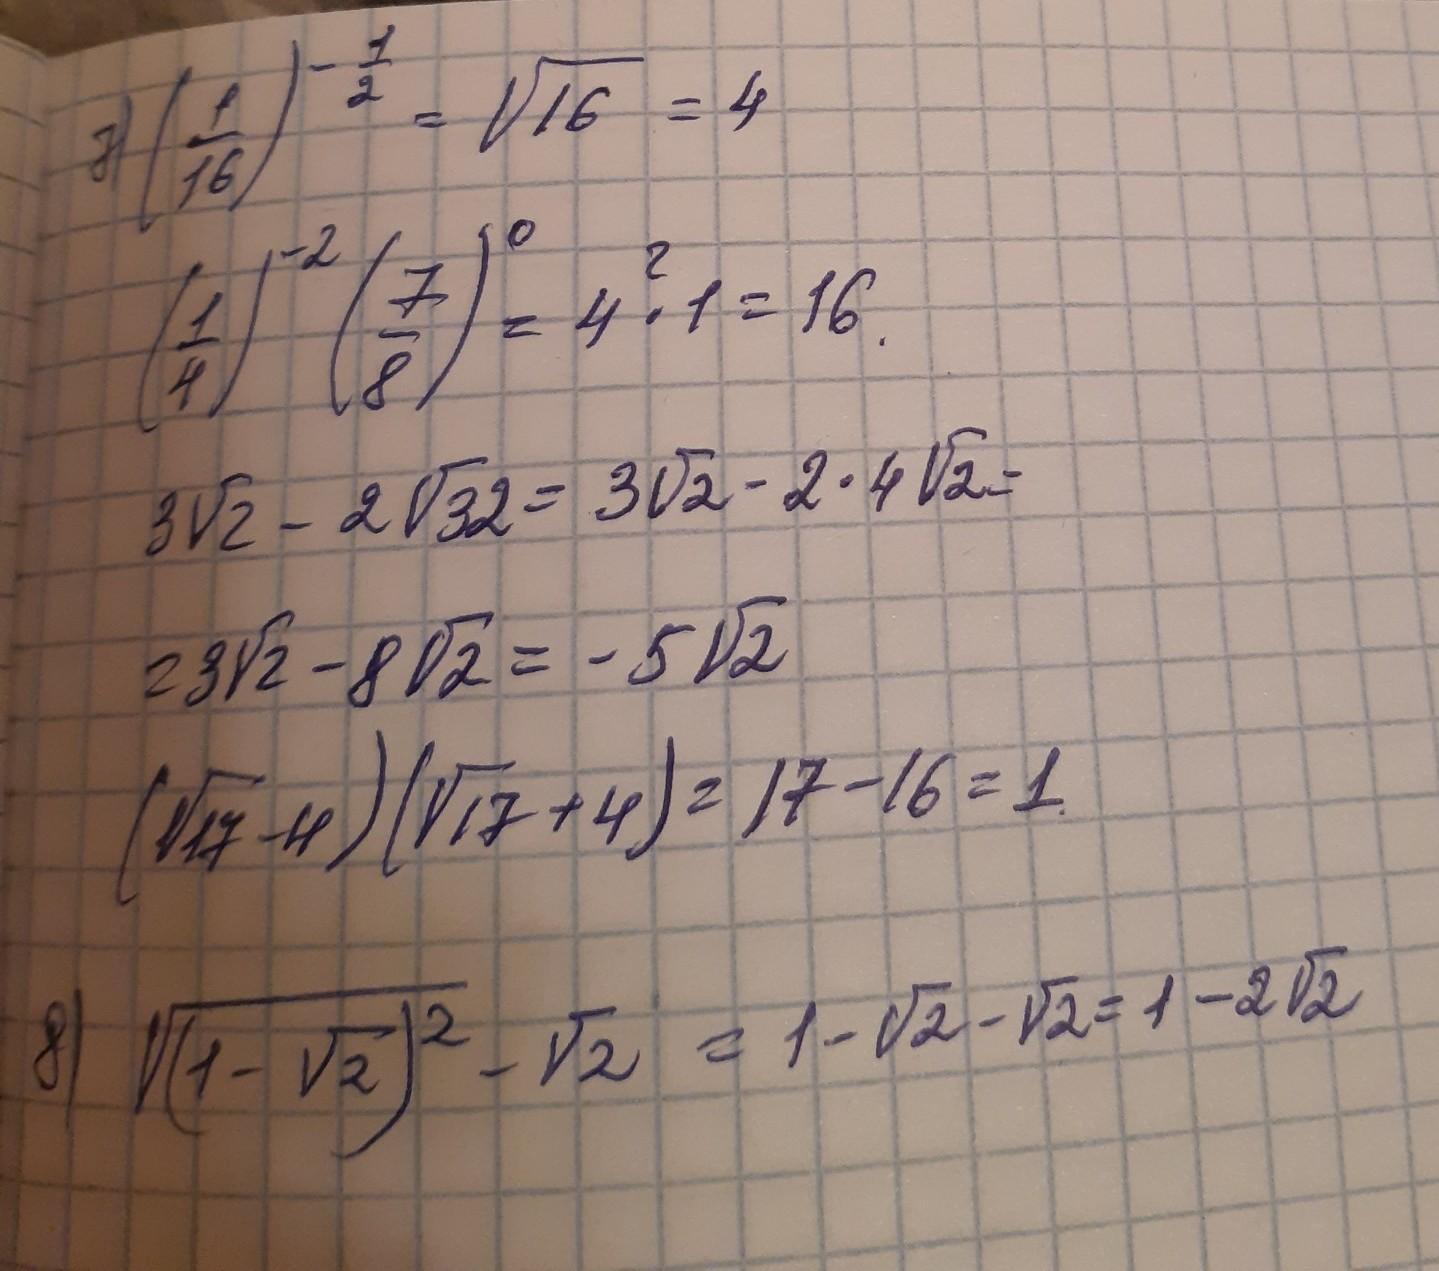 7) (1/16)^(-1/2) = √16 = 4
(1/4)^(-2) (7/8)^0 = 4^2 · 1 = 16.
3√2 - 2√32 = 3√2 - 2·4√2 =
= 3√2 - 8√2 = - 5√2
(√17 - 4)(√17 + 4) = 17 - 16 = 1.
8) √((1 - √2)^2) - √2 = 1 - √2 - √2 = 1 - 2√2